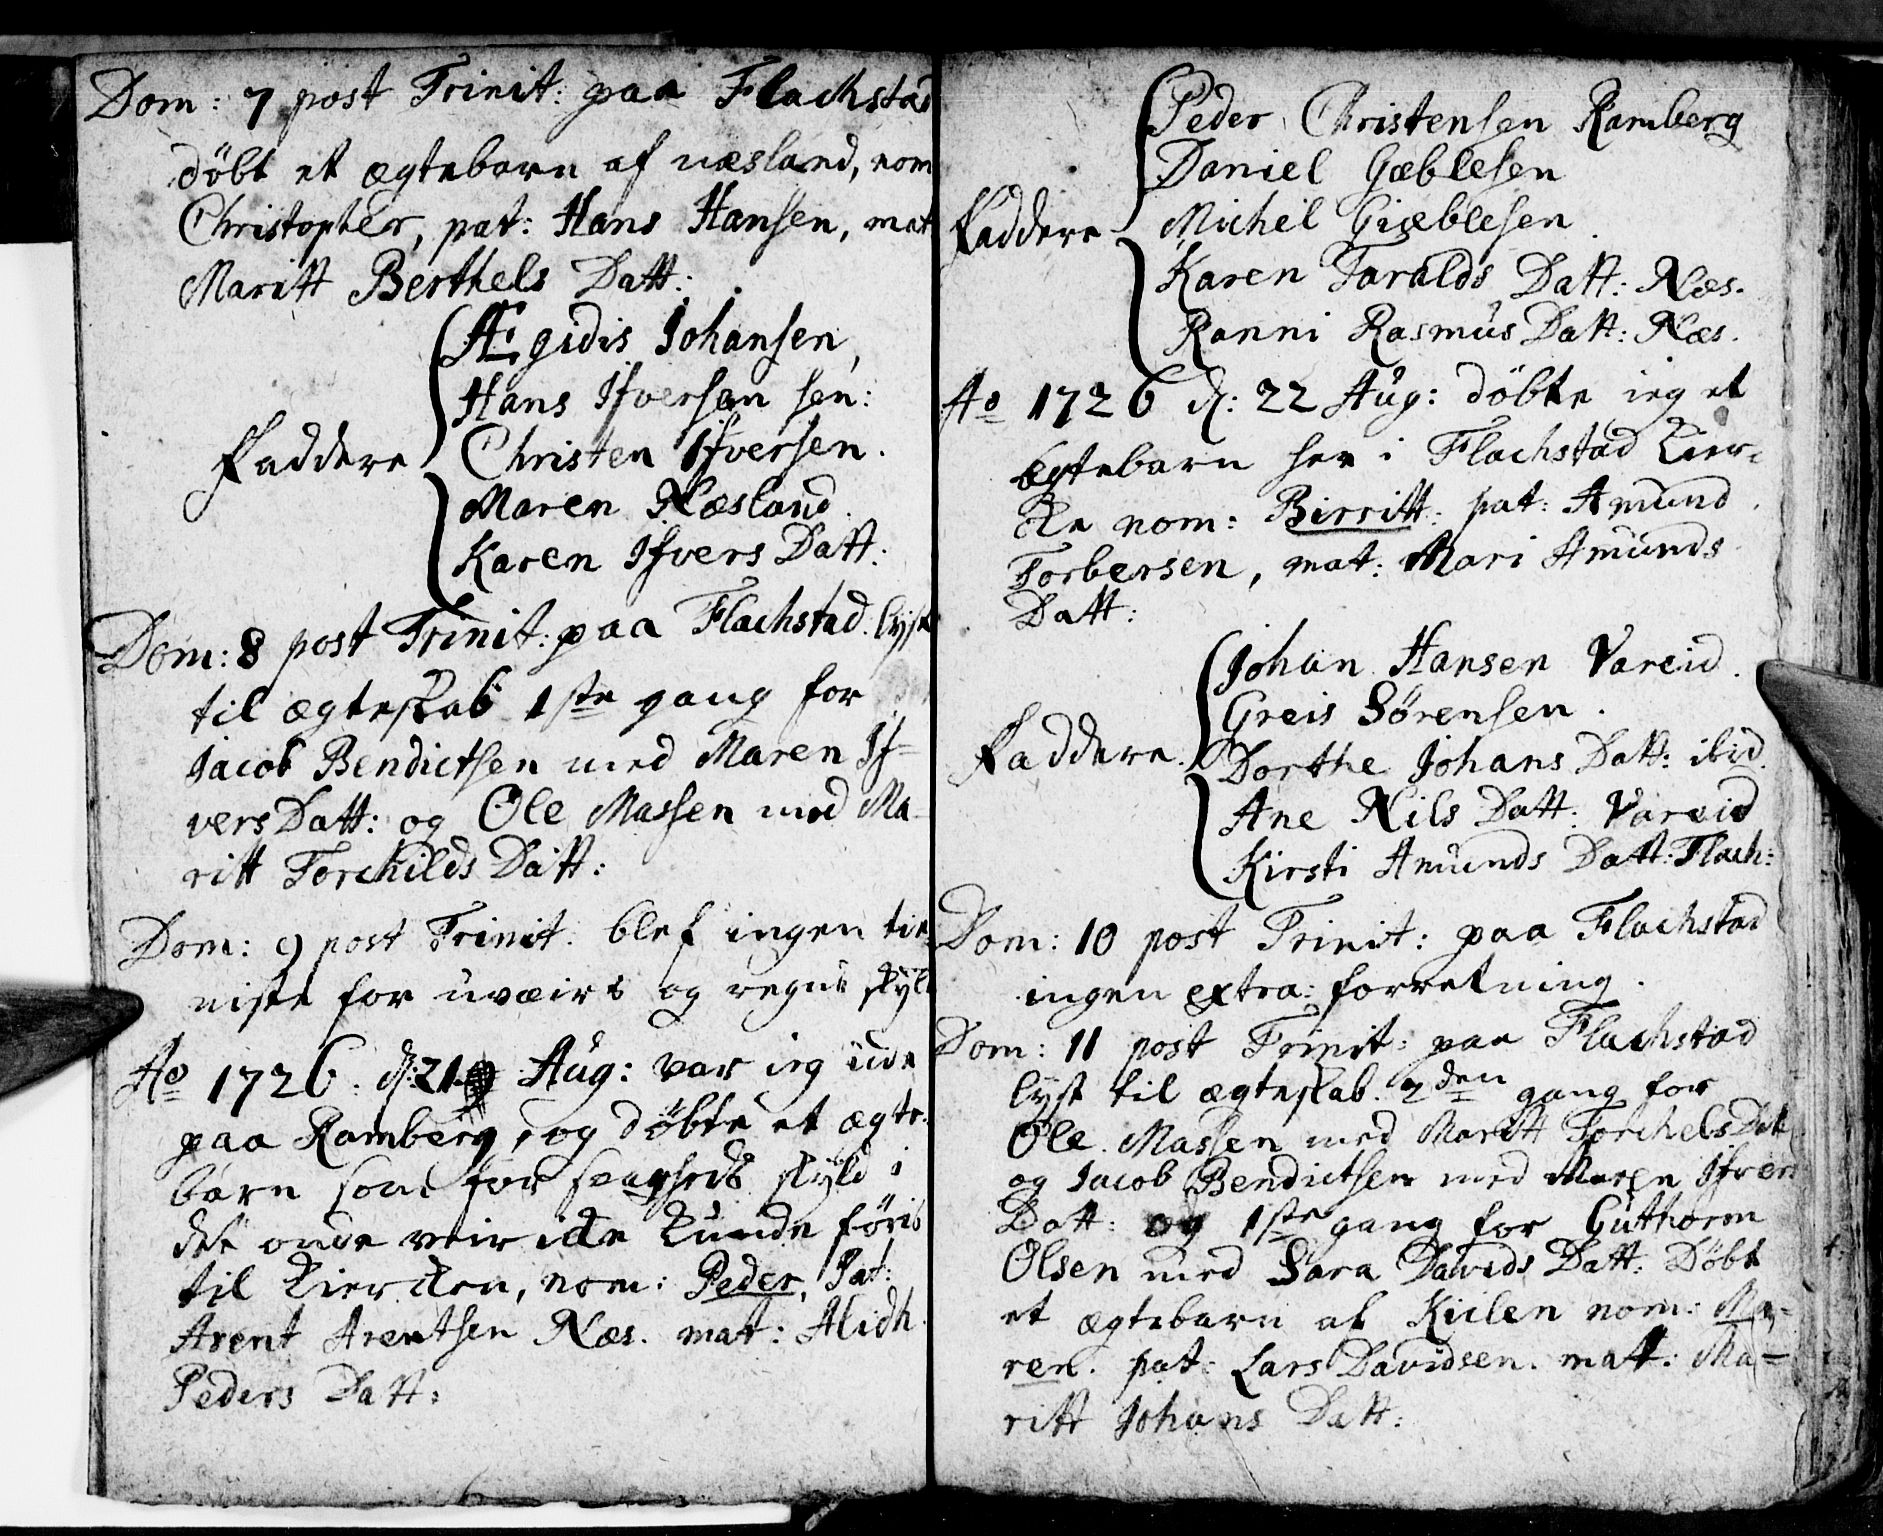 Dom: 7 post Trinit: paa Flachstad
döbt et ægtebarn af næsland, nom
Christopher, pat: Hans Hansen, mat
Maritt Berthels Datt:
Ægidis Johansen,
Hans Ifversen sen:
Faddere Christen Ifversen.
Maren Næsland.
Karen Ifvers Datt:
Dom: 8 post Trinit: paa Flachstad. lyst
til ægteskab 1ste gang for
Jacob Bendictsen med Maren If-
vers Datt: og Ole Massen med Ma-
ritt Torchilds Datt:
Dom: 9 post Trinit. blef ingen tie
niste for uvæirs og regns skyld
Ao 1726. d: 21 Aug: var ieg ude
paa Ramberg, og döbte et ægte-
barn som for svagheds skyld i
det onde veir icke kunde föris
til Kiercken, nom: Peder, Pat:
Arent Arentsen Næs. mat: Alidh.
Peders Datt:
Peder Christensen Ramberg
Daniel Gæblesen
Faddere Michel Giæblesen.
Karen Taralds Datt: Næs.
Ranni Rasmus Datt: Næs.
Ao 1726 d: 22 Aug: döbte ieg et
ægtebarn her i Flachstad Kier-
cke nom: Birritt. pat: Amund
Torbersen, mat: Mari Amunds
Datt:
Johan Hansen Vareid.
Greis Sörensen.
Faddere. Dorthe Johans Datt: ibid.
Ane Nils Datt: Vareid
Kirsti Amunds Datt: Flach:
Dom: 10 post Trinit: paa Flachstad
ingen extra: forretning.
Dom: 11 post Trinit: paa Flachstad
lyst til ægteskab. 2den gang for
Ole Massen med Maritt Torchels Datt
og Jacob Bendictsen med Maren Ifvers
Datt: og 1ste gang for Guthorm
Olsen med Sara Davids Datt: Döbt
et ægtebarn af Kiilen nom: Ma-
ren. pat: Lars Davidsen. matt: Ma-
ritt Johans Datt: